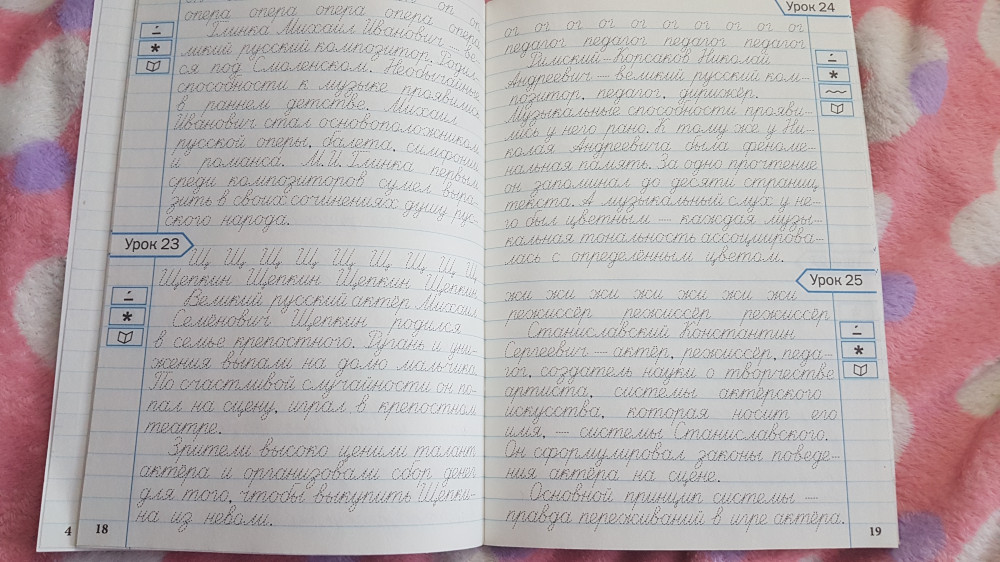 оп оп
опера опера опера опера опера
Глинка Михаил Иванович — ве-
ликий русский композитор. Родил-
ся под Смоленском. Необычайные
способности к музыке проявились
в раннем детстве. Михаил
Иванович стал основоположником
русской оперы, балета, симфонии
и романса. М.И.Глинка первым
среди композиторов сумел выра-
зить в своих сочинениях душу рус-
ского народа.
Урок 23
Щ Щ Щ Щ Щ Щ Щ Щ Щ
Щепкин Щепкин Щепкин Щепкин
Великий русский актёр Михаил
Семёнович Щепкин родился
в семье крепостного. Ругань и уни-
жения выпали на долю мальчика.
По счастливой случайности он по-
пал на сцену, играл в крепостном
театре.
Зрители высоко ценили талант
актёра и организовали сбор денег
для того, чтобы выкупить Щепки-
на из неволи.
4 18
Урок 24
ог ог ог ог ог ог ог ог ог ог
педагог педагог педагог педагог
Римский-Корсаков Николай
Андреевич — великий русский ком-
позитор, педагог, дирижёр.
Музыкальные способности прояви-
лись у него рано. К тому же у Ни-
колая Андреевича была феноме-
нальная память. За одно прочтение
он запоминал до десяти страниц
текста. А музыкальный слух у не-
го был цветным — каждая музы-
кальная тональность ассоциирова-
лась с определённым цветом.
Урок 25
жи жи жи жи жи жи жи
режиссёр режиссёр режиссёр
Станиславский Константин
Сергеевич — актёр, режиссёр, педа-
гог, создатель науки о творчестве
артиста, системы актёрского
искусства, которая носит его
имя, — системы Станиславского.
Он сформулировал законы поведе-
ния актёра на сцене.
Основной принцип системы —
правда переживаний в игре актёра.
19